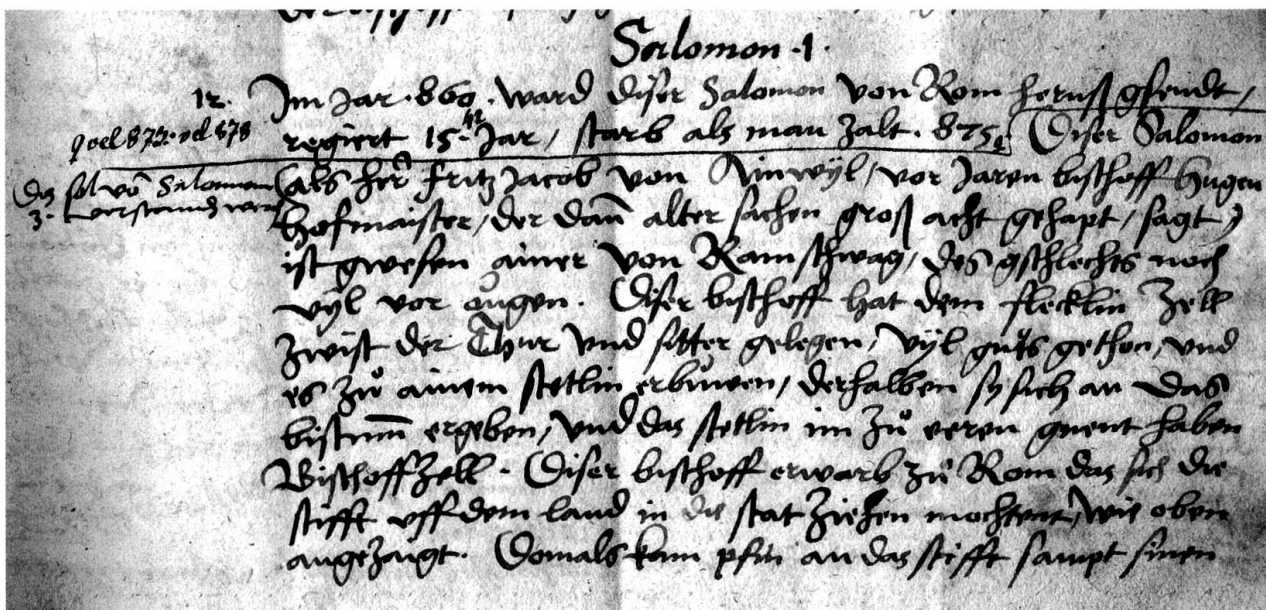 Salomon .1.
12. Im Jar .860. ward diser Salomon von Rom heruß gsendt /
vel 873. vel 878 regiert 15. Jar / starb als man zalt . 875. Diser Salomon
Das sol vō Salomon (als her Fritz Jacob von Ainwyl / vor Jaren bischoff Hugen
3. verstanden werden hofmaister / der dañ alter sachen groß acht gehapt / sagt)
ist gwesen ainer von Ramschwag / des gschlechts noch
vyl vor ougen . Diser bischoff hat dem flecklin Zell
zwist der Thur vnd sitter gelegen / vyl gůts gethon / vnd
es zů ainem stetlin erbuwen / derhalben sy sich an das
bistum̄ ergeben / vnd das stetlin im zů eeren gnent haben
Bischoffzell . Diser bischoff erwarb zů Rom das sich die
stifft vff dem land in die stat ziehen mochtent / wie oben
angezaigt . Domals kam pfin an das stifft sampt sinen